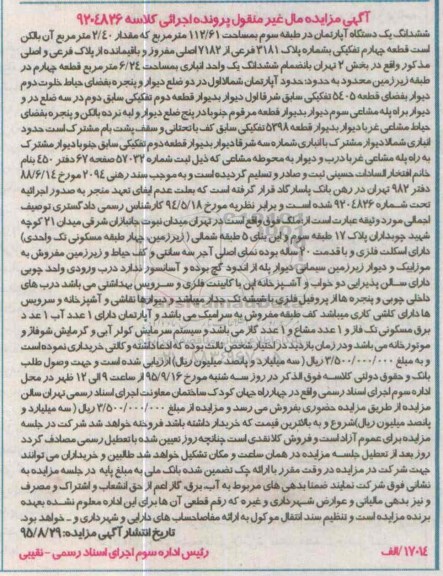 آگهی مزایده مال غیر منقول پرونده اجرائی کلاسه ۹۲۰۴۸۲۶
ششدانگ یک دستگاه آپارتمان در طبقه سوم بمساحت ۱۱۲/۶۱ مترمربع که مقدار ۲/۴۰ مترمربع آن بالکن
است قطعه چهارم تفکیکی بشماره پلاک ۳۱۸۱ فرعی از ۷۱۸۲ اصلی مفروز و باقیمانده از پلاک فرعی و اصلی
مذکور واقع در بخش ۲ تهران بانضمام ششدانگ یک واحد انباری بمساحت ۶/۲۴ مترمربع قطعه چهارم در
طبقه زیرزمین محدود به حدود: حدود آپارتمان شمالا اول در دو ضلع دیوار و پنجره بفضای حیاط خلوت دوم
دیوار بفضای قطعه ۵۴۰۵ تفکیکی سابق شرقا اول دیوار بدیوار قطعه دوم تفکیکی سابق دوم در سه ضلع در و
دیوار براه پله مشاعی سوم دیوار بدیوار قطعه مرقوم جنوبا در پنج ضلع دیوار و لبه نرده بالکن و پنجره بفضای
حیاط مشاعی غربا دیوار بدیوار قطعه ۵۳۹۸ تفکیکی سابق کف با تحتانی و سقف پشت بام مشترک است حدود
انباری شمالا دیوار مشترک با انباری شماره سه شرقا دیوار بدیوار قطعه دوم تفکیکی سابق جنوبا دیوار مشترک
به راه پله مشاعی غربا درب و دیوار به محوطه مشاعی که ذیل ثبت شماره ۵۷۰۳۲ صفحه ۶۷ دفتر ۴۵۰ بنام
خانم افتخارالسادات حسینی ثبت و صادر و تسلیم گردیده است و به موجب سند رهنی ۲۰۹۴ مورخ ۸۸/۶/۱۴
دفتر ۹۸۲ تهران در رهن بانک پاسارگاد قرار گرفته است که بعلت عدم ایفای تعهد منجر به صدور اجرائیه
تحت شماره ۹۲۰۴۸۲۶ شده است و برابر نظریه مورخ ۹۴/۵/۱۸ کارشناس رسمی دادگستری توصیف
اجمالی مورد وثیقه عبارت است از ملک فوق واقع است در تهران میدان نبوت جانبازان شرقی میدان ۲۱ کوچه
شهید چوبداران پلاک ۱۷ طبقه سوم و این بنای ۵ طبقه شمالی (زیرزمین چهار طبقه مسکونی تک واحدی)
دارای اسکلت فلزی و با قدمت ۲۰ ساله بوده نمای اصلی آجر سه سانتی و کف حیاط و زیرزمین مفروش به
موزاییک و دیوار زیرزمین سیمانی دیوار پله از اندود گچ بوده و آسانسور ندارد درب ورودی واحد چوبی
دارای سالن پذیرایی دو خواب و آشپزخانه اپن با کابینت فلزی و سرویس بهداشتی می باشد درب های
داخلی چوبی و پنجره ها از پروفیل فلزی با شیشه تک جدار میباشد و دیوارها نقاشی و آشپزخانه و سرویس
ها دارای کاشی کاری میباشد کف طبقه مفروش به سرامیک می باشد و آپارتمان دارای ۱ عدد آب ۱ عدد
برق مسکونی تک فاز و ۱ عدد مشاع و ۱ عدد گاز می باشد و سیستم سرمایش کولر آبی و گرمایش شوفاژ و
موتورخانه می باشد و در زمان بازدید در اختیار شخص ثالث بوده که ادعا داشته و کاتی خریداری نموده است
و به مبلغ ۳/۵۰۰/۰۰۰/۰۰۰ ریال (سه میلیارد و پانصد میلیون ریال) ارزیابی شده است و جهت وصول طلب
بانک و حقوق دولتی کلاسه فوق الذکر در روز سه شنبه مورخ ۹۵/۹/۱۶ از ساعت ۹ الی ۱۲ ظهر در محل
اداره سوم اجرای اسناد رسمی واقع در چهارراه جهان کودک ساختمان معاونت اجرای اسناد رسمی تهران سالن
مزایده از طریق مزایده حضوری بفروش می رسد و مزایده از مبلغ ۳/۵۰۰/۰۰۰/۰۰۰ ریال (سه میلیارد و
پانصد میلیون ریال) شروع و به بالاترین قیمت که خریدار داشته باشد فروخته خواهد شد شرکت در جلسه
مزایده برای عموم آزاد است و فروش کلا نقدی است چنانچه روز تعیین شده با تعطیل رسمی مصادف گردد
روز بعد از تعطیل جلسه مزایده در همان ساعت و مکان تشکیل خواهد شد طالبین و خریداران می توانند
جهت شرکت در مزایده در وقت مقرر با ارائه چک تضمین شده بانک ملی به مبلغ پایه در جلسه مزایده به
نشانی فوق شرکت نمایند ضمنا بدهی های مربوط به آب، برق، گاز اعم از حق انشعاب و اشتراک و مصرف
و نیز بدهی مالیاتی و عوارض شهرداری و غیره که رقم قطعی آن ها برای این اداره معلوم نشده بعهده
برنده مزایده است و تنظیم سند انتقال موکول به ارائه مفاصاحساب های دارایی و شهرداری و ... خواهد بود.
تاریخ انتشار آگهی مزایده: ۹۵/۸/۲۹
۱۷۰۱۴/الف رئیس اداره سوم اجرای اسناد رسمی - نقیبی